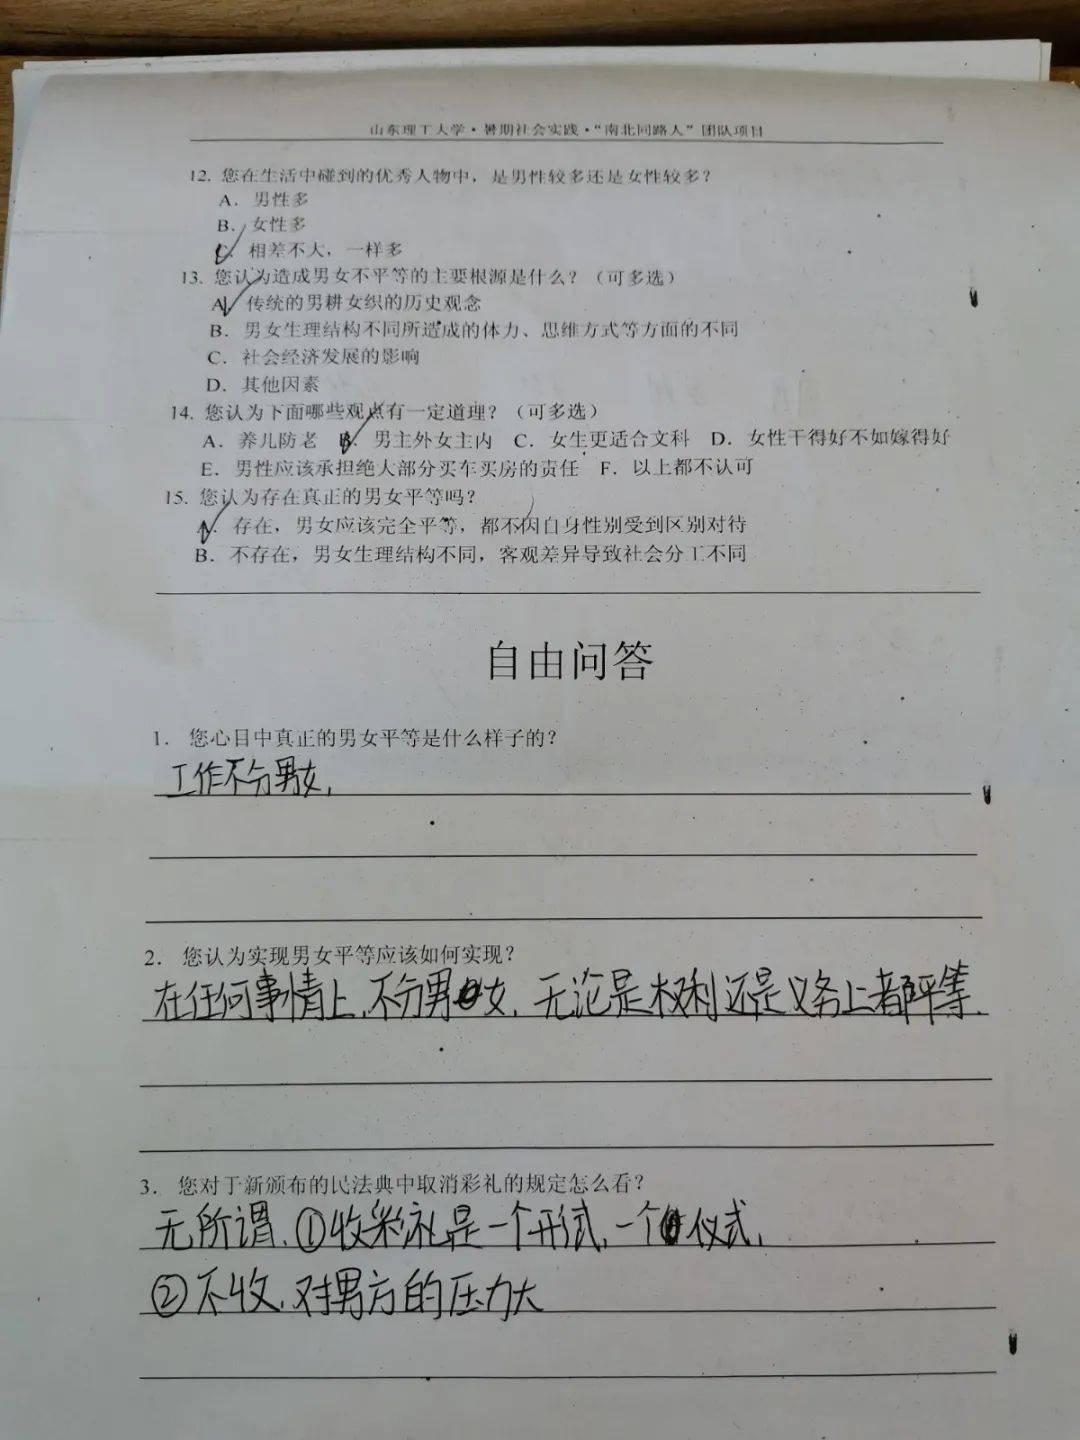 山东理工大学·暑期社会实践·“南北同路人”团队项目
12. 您在生活中碰到的优秀人物中，是男性较多还是女性较多？
A. 男性多
B. 女性多
C. 相差不大，一样多
13. 您认为造成男女不平等的主要根源是什么？（可多选）
A. 传统的男耕女织的历史观念
B. 男女生理结构不同所造成的体力、思维方式等方面的不同
C. 社会经济发展的影响
D. 其他因素
14. 您认为下面哪些观点有一定道理？（可多选）
A. 养儿防老 B. 男主外女主内 C. 女生更适合文科 D. 女性干得好不如嫁得好
E. 男性应该承担绝大部分买车买房的责任 F. 以上都不认可
15. 您认为存在真正的男女平等吗？
A. 存在，男女应该完全平等，都不因自身性别受到区别对待
B. 不存在，男女生理结构不同，客观差异导致社会分工不同
自由问答
1. 您心目中真正的男女平等是什么样子的？
工作不分男女，
2. 您认为实现男女平等应该如何实现？
在任何事情上，不分男女，无论是权利还是义务上都平等．
3. 您对于新颁布的民法典中取消彩礼的规定怎么看？
无所谓，①收彩礼是一个形式，一个仪式，
②不收，对男方的压力大